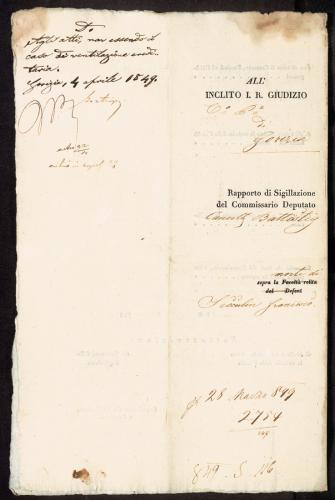 agli atti, non essendo il
caso di ventilazione eredi-
taria.
Gorizia, 4 aprile 1849.
ALL'
INCLITO I. R. GIUDIZIO
Gorizia
Rapporto di Sigillazione
del Commissario Deputato
Battistig
morte di
sopra la Facoltà relita
del Defont
Francesco
28 Marzo 849
2754
849. S. 116